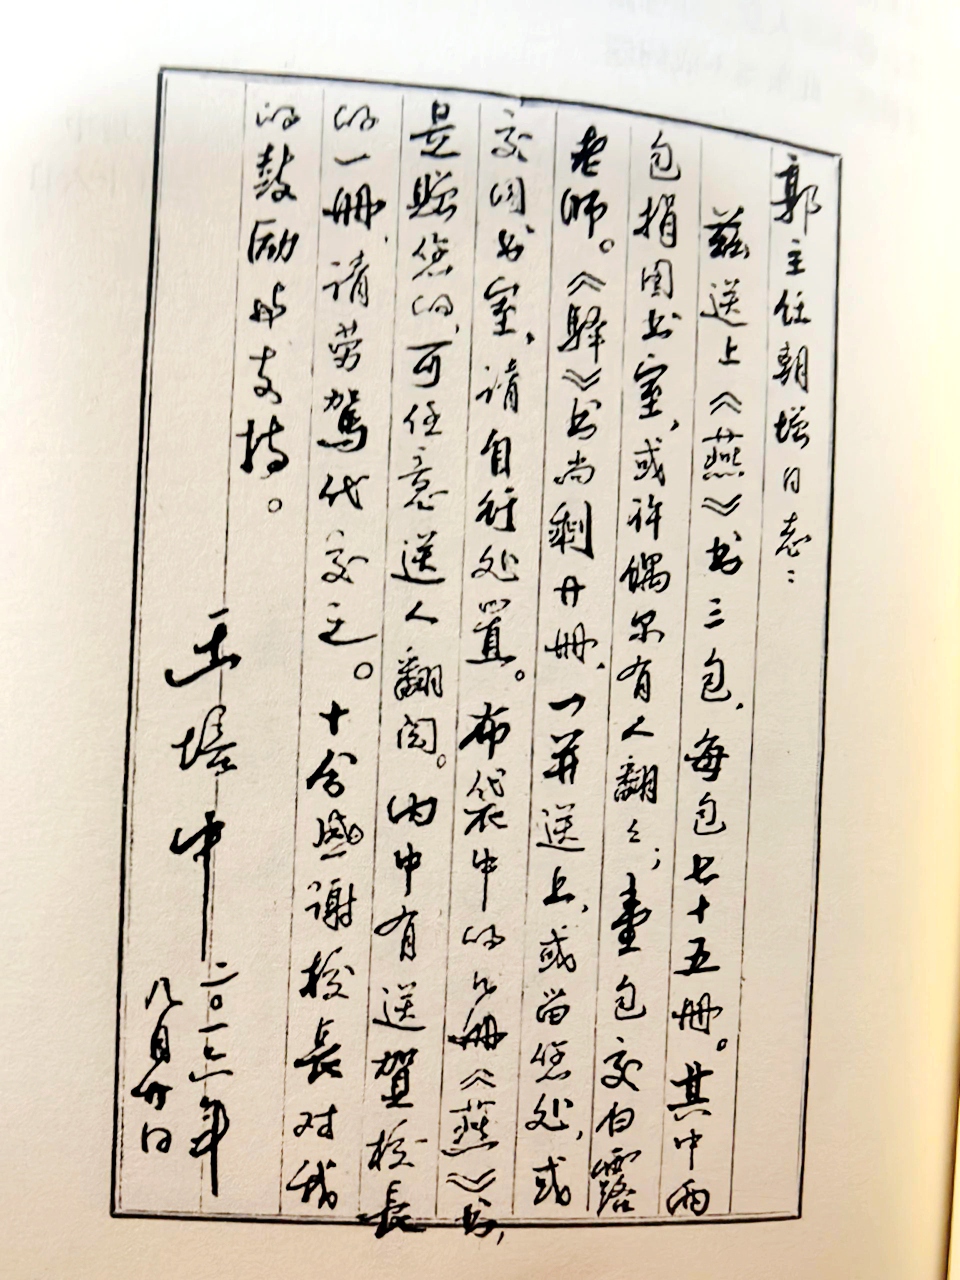 郭主任朝增同志：
兹送上《燕》书三包，每包七十五册。其中两
包捐图书室，或许偶尔有人翻之；壹包交白露
老师。《驿》书尚剩廿册，一并送上，或留您处，或
交图书室，请自行处置。布袋中的几册《燕》书，
是赠您的，可任意送人翻阅。内中有送贺校长
的一册，请劳驾代交之。十分感谢校长对我
的鼓励与支持。
王培中
二〇一六年
八月廿日